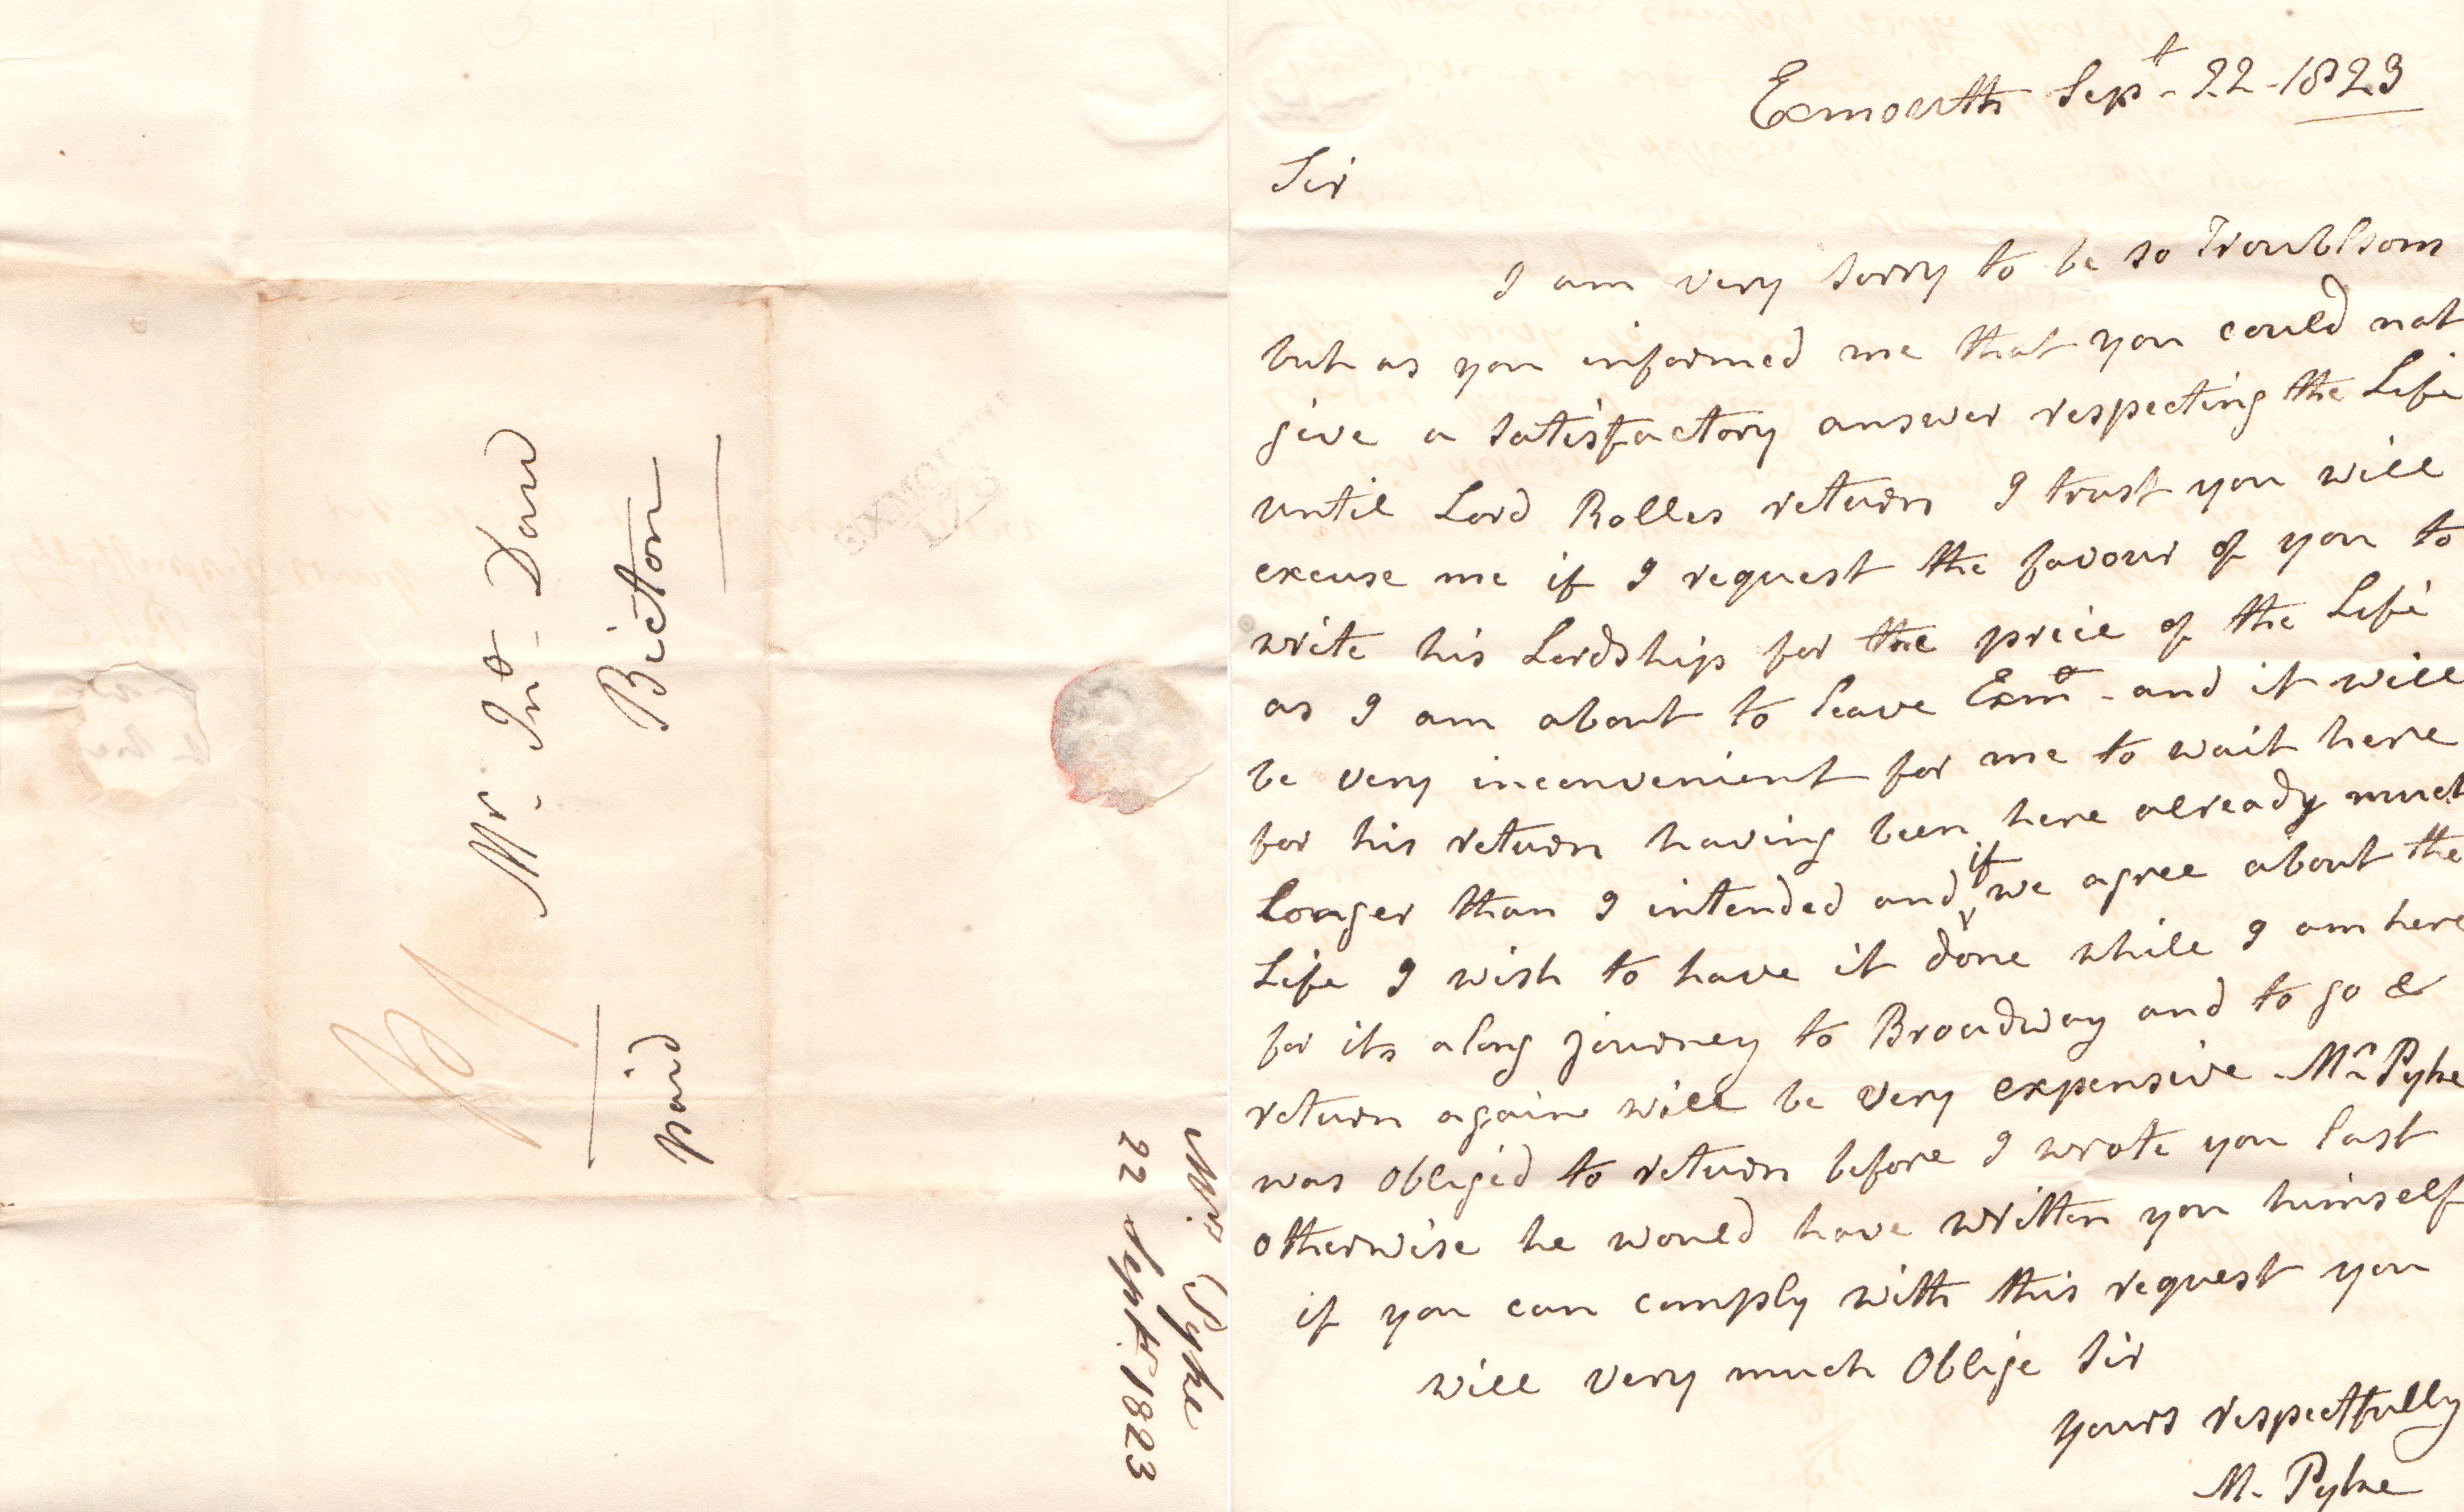 Mr. Jno. Daw
Bicton
paid
EXMOUTH
176
Mrs Pyke
22 Sept. 1823
Exmouth Sept - 22 - 1823
Sir
I am very sorry to be so Troublsom
but as you informed me that you could not
give a satisfactory answer respecting the Life
until Lord Rolles return I trust you will
excuse me if I request the favour of you to
write his Lordship for the price of the Life
as I am about to leave Exmo - and it will
be very inconvenient for me to wait here
for his return having been here already much
longer than I intended and if we agree about the
Life I wish to have it done while I am here
for its along journey to Broadway and to go &
return again will be very expensive - Mr Pyke
was obliged to return before I wrote you last
otherwise he would have written you himself
if you can comply with this request you
will very much Oblige Sir
yours respectfully
M. Pyke